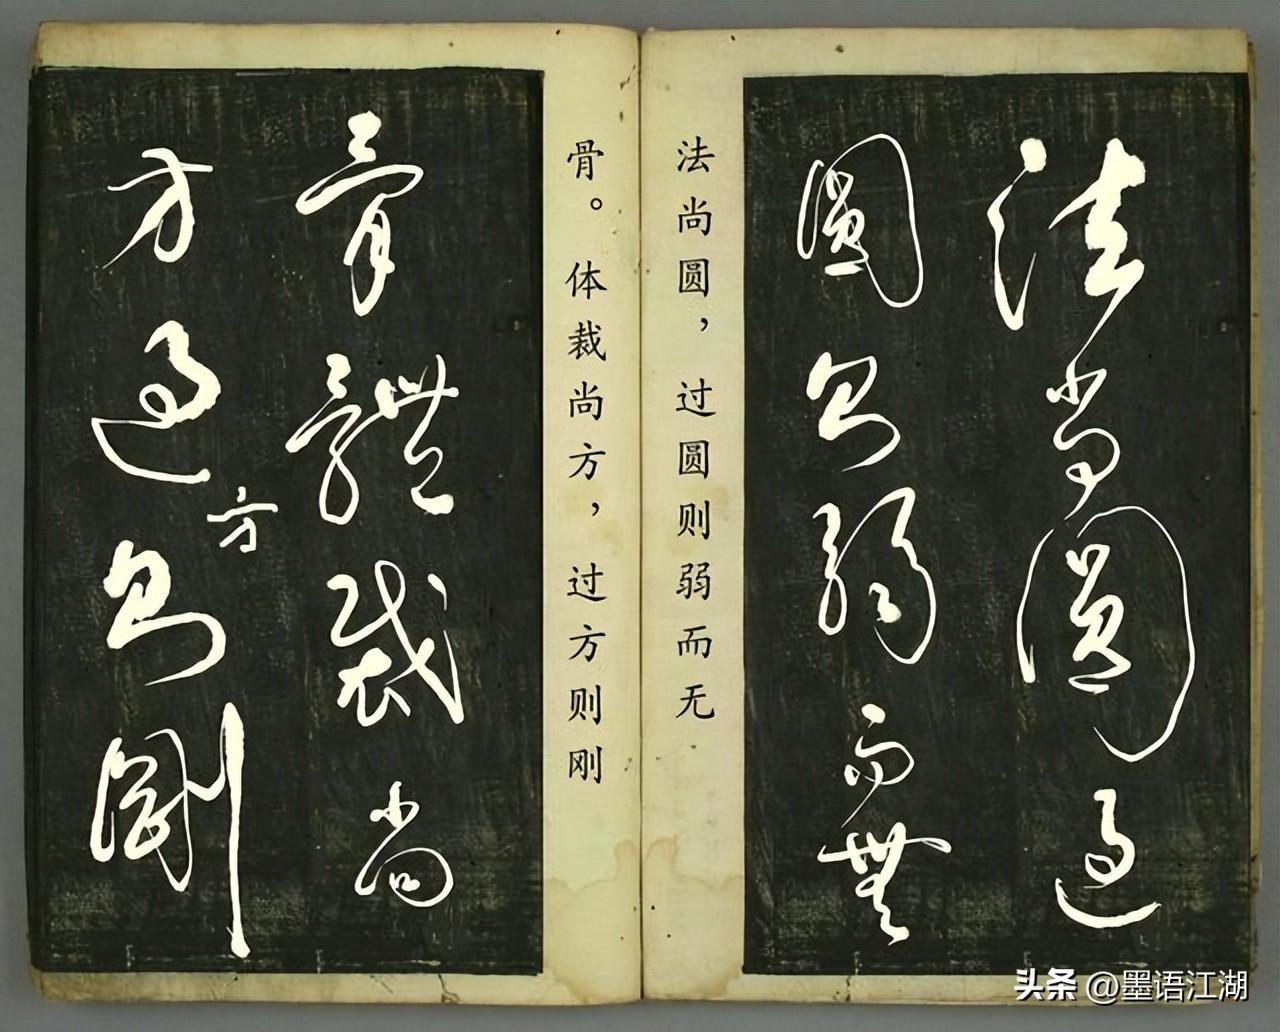 法尚圓過
圓則弱而無
法尚圆，过圆则弱而无
骨。体裁尚方，过方则刚
骨體裁尚
方過方則剛
头条 @墨语江湖